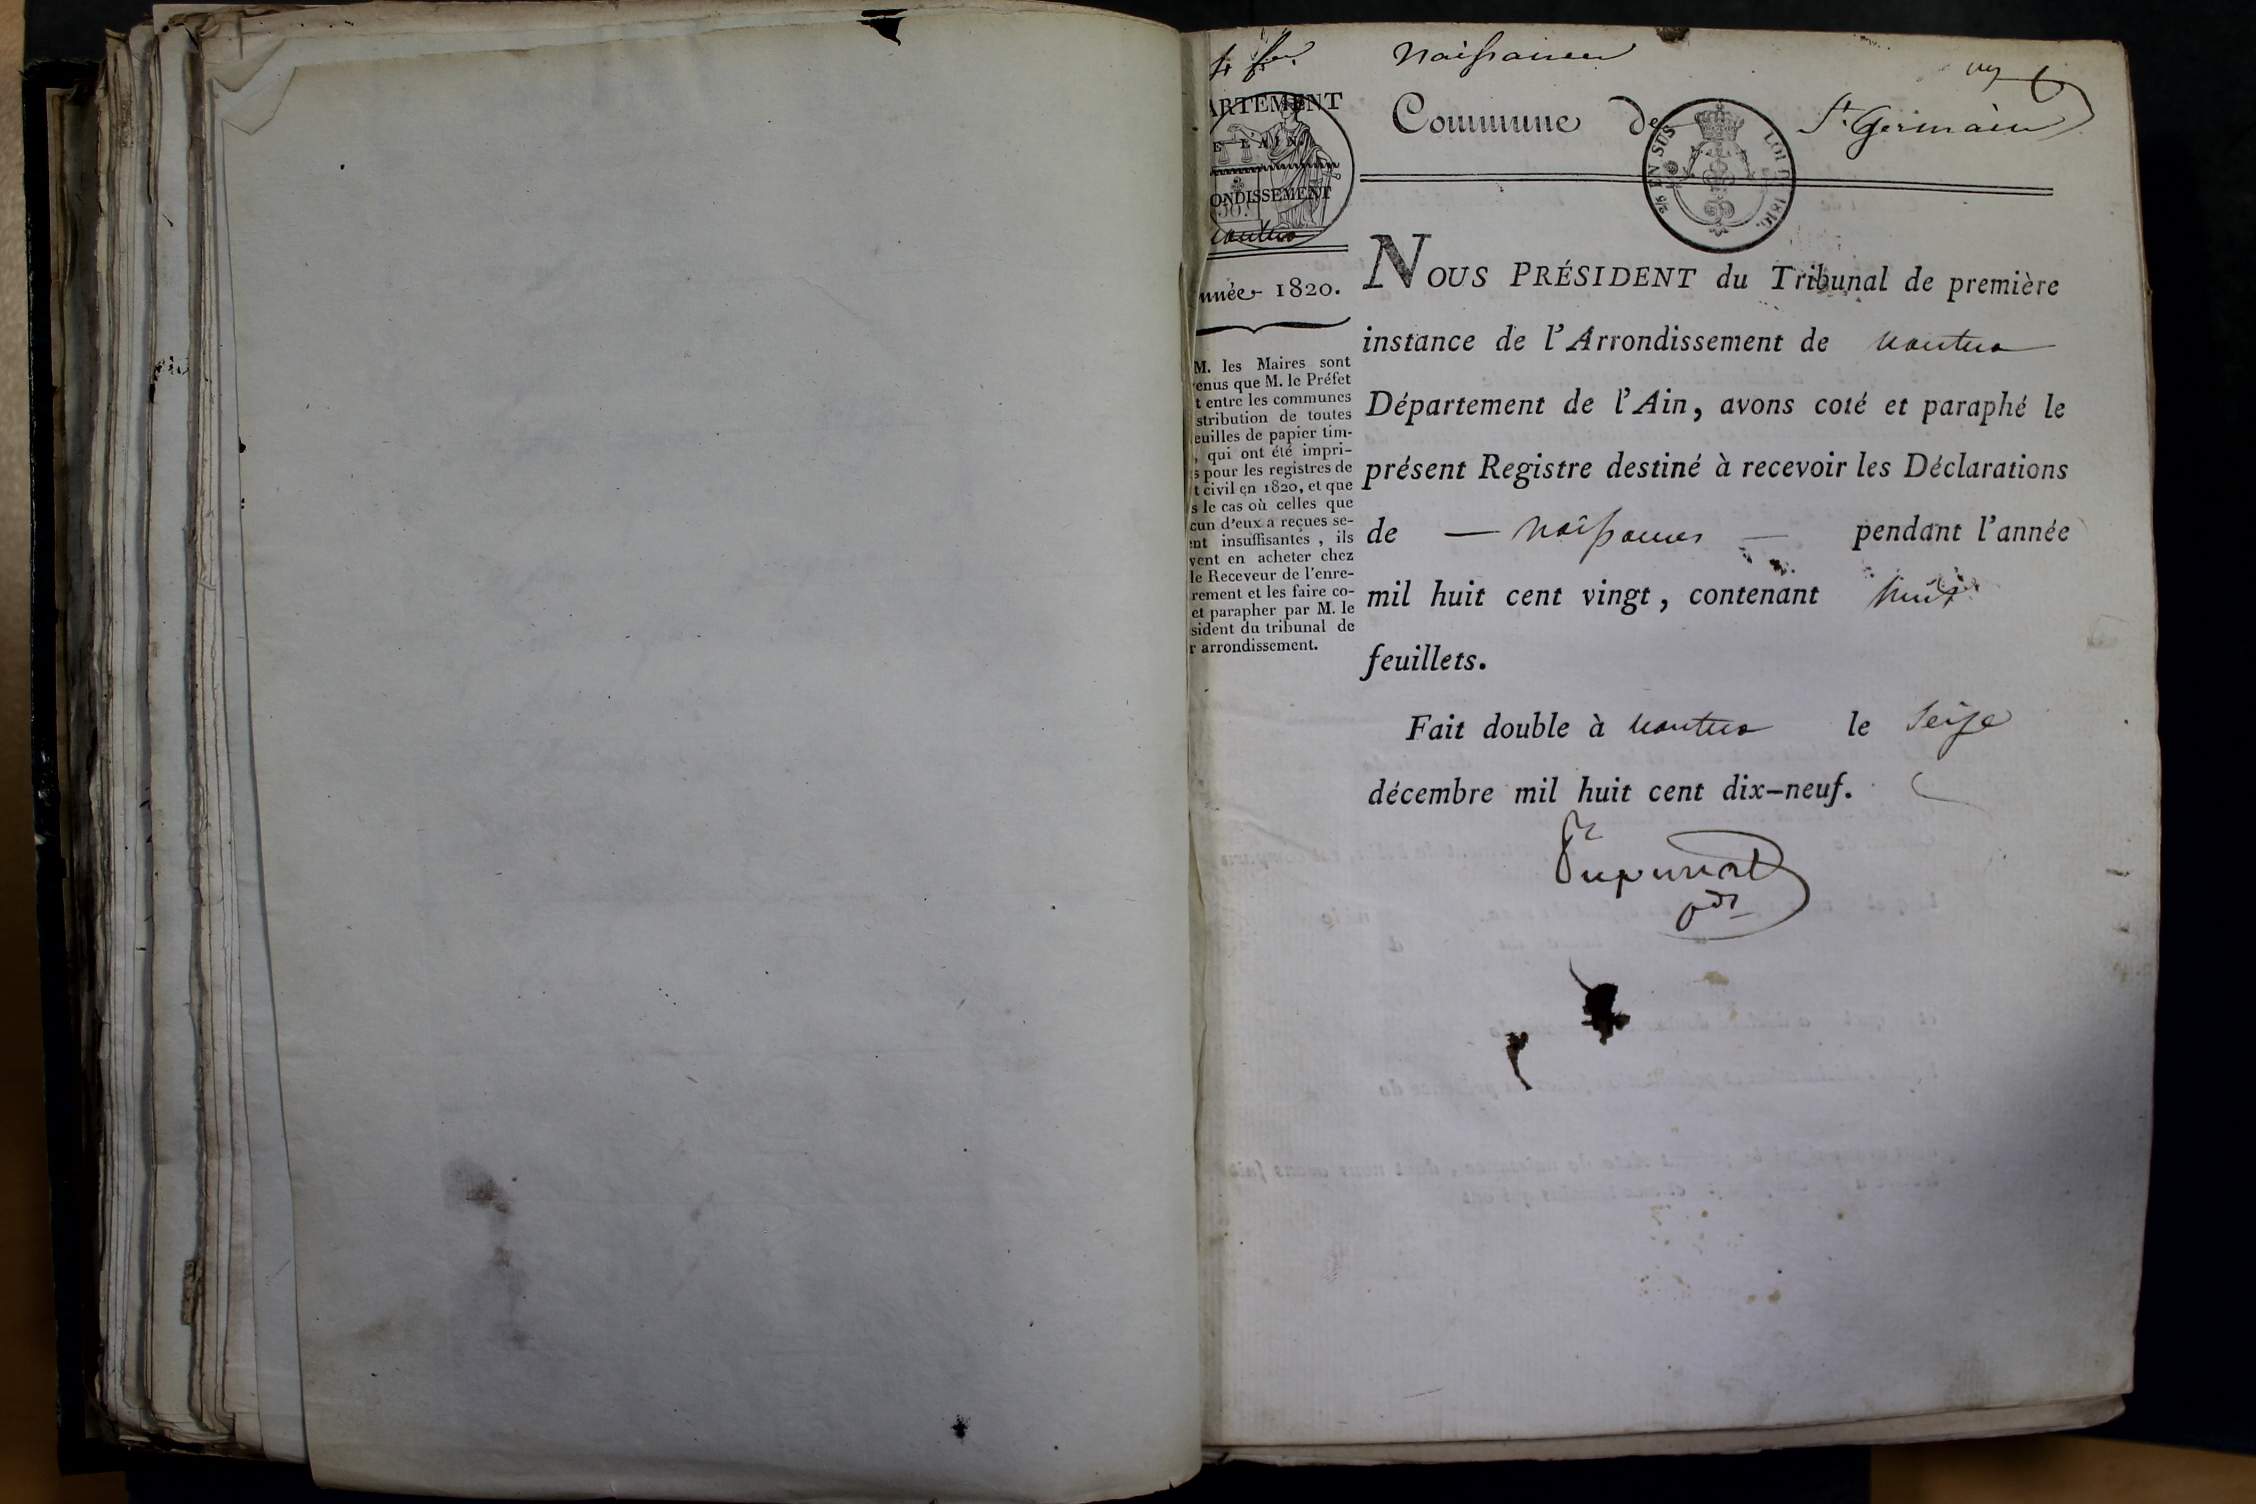 4 f.er Naissances
ARTEMENT
Commune de St. Germain
E L'AIN.
ONDISSEMENT
antua
25 EN SUS LOI DE 1816.
nnée 1820.
M. les Maires sont
venus que M. le Préfet
t entre les communes
stribution de toutes
euilles de papier tim-
, qui ont été impri-
s pour les registres de
t civil en 1820, et que
s le cas où celles que
cun d'eux a reçues se-
ent insuffisantes, ils
vent en acheter chez
le Receveur de l'enre-
rement et les faire co-
et parapher par M. le
sident du tribunal de
r arrondissement.
NOUS PRÉSIDENT du Tribunal de première
instance de l'Arrondissement de nantua
Département de l'Ain, avons coté et paraphé le
présent Registre destiné à recevoir les Déclarations
de — Naissances — pendant l'année
mil huit cent vingt, contenant huit
feuillets.
Fait double à nantua le seize
décembre mil huit cent dix-neuf.
pdt